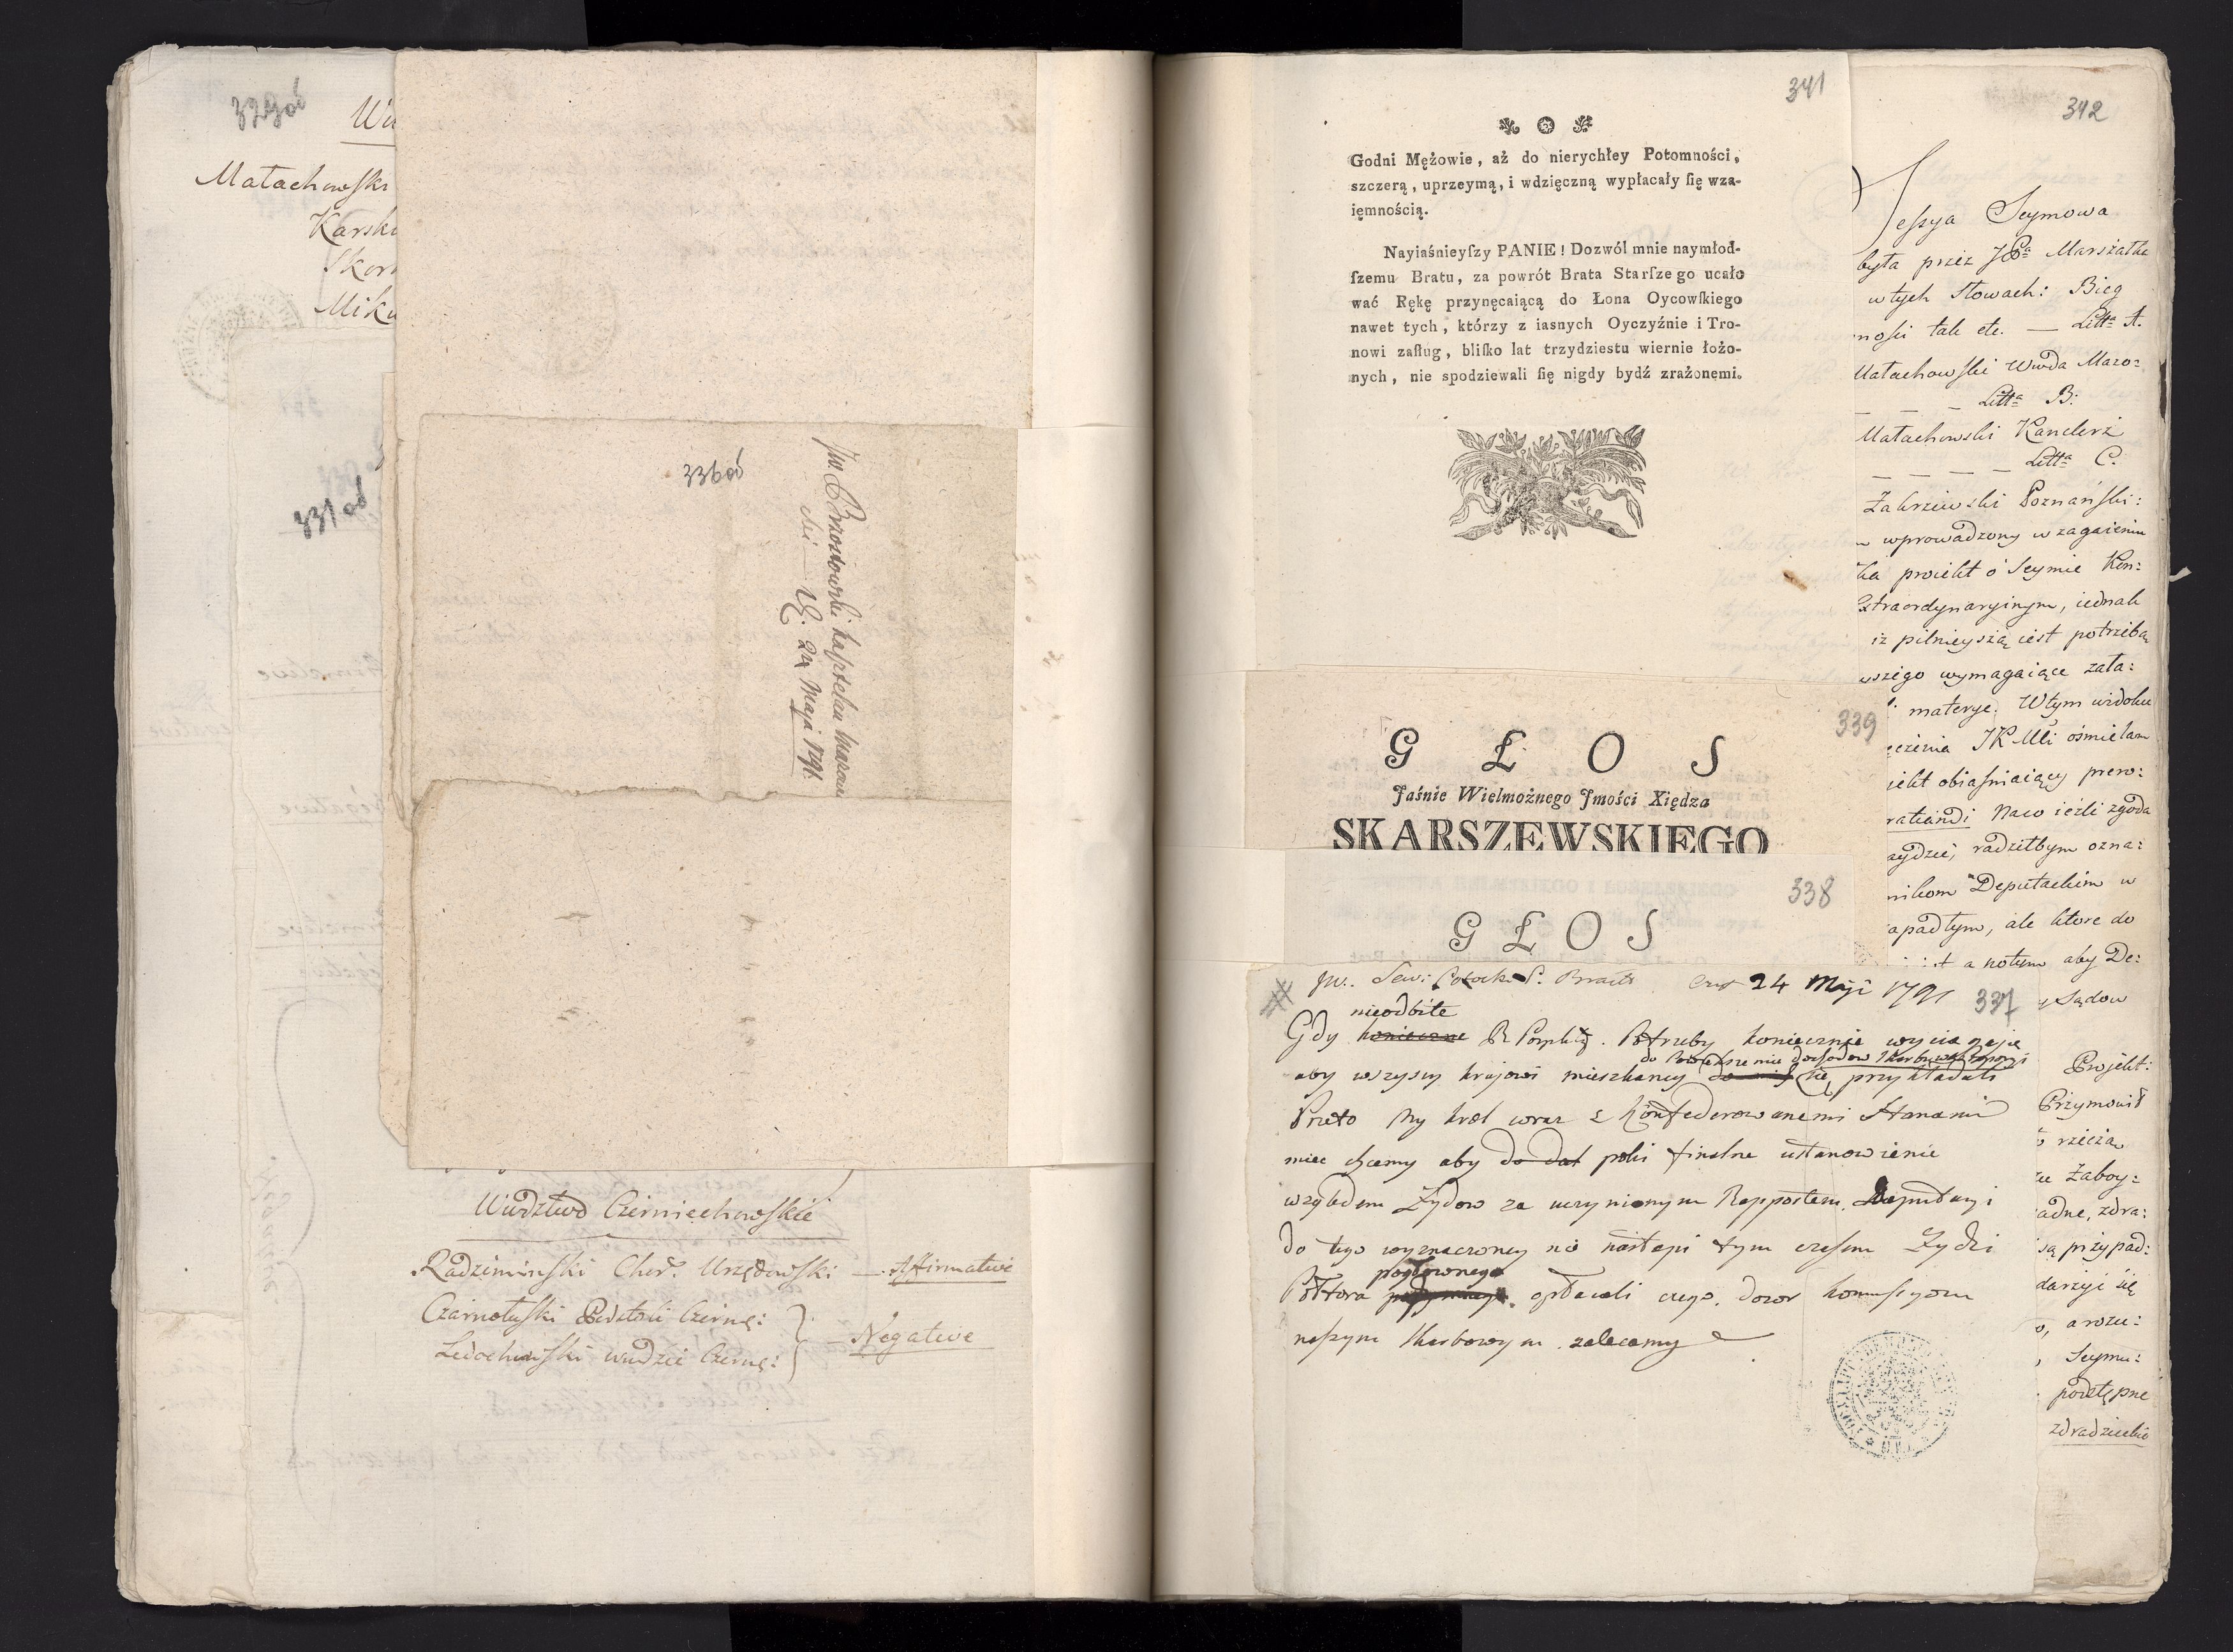 329od
Małachowski
Karski
Skor
Miku
331 od
336od
JW Brzostowski kasztelan
die 24 Maja 1791
Wudztwo Czerniechowskie
Radzimiński Chor. Urzędowski — Affirmative
Czarnołuski
Ledochowski — Negative
341
Godni Mężowie, aż do nierychłey Potomności,
szczerą, uprzeymą, i wdzięczną wypłacały ſię wza-
ięmnością.
Nayiaśnieyſzy PANIE! Dozwól mnie naymłod-
ſzemu Bratu, za powrót Brata Starſzego ucało
wać Rękę przynęcaiącą do Łona Oycowſkiego
nawet tych, którzy z iasnych Oyczyźnie i Tro-
nowi zaſług, bliſko lat trzydziestu wiernie łożo-
nych, nie spodziewali ſię nigdy bydź zrażonemi.
339
GŁOS
Jaśnie Wielmożnego Jmości Xiędza
SKARSZEWSKIEGO
338
GŁOS
24 Maji 1791 337
nieodbite
Gdy konieczne R Pospolitej Potrzeby koniecznie wyciągają
aby wszyscy krajowi mieszkancy do nich się przykładali
Przeto My krol wraz z Skonfederowanemi Stanami
miec chcemy aby do dal poki finalne ustanowienie
względem Zydow za uczynionym Rapportem Deputacyi
do tego wyznaczoney nie nastąpi tym czasem Zydzi
pogłownego
Połtora opłacali czego dozor kommissyom
naszym skarbowym zalecamy
342
Sessya Seymowa
była przez JPa Marszałka
w tych słowach: Bieg
nosci tak etc. — Litta A.
Małachowski Wwda Mazo:
Litta B:
Małachowski Kanclerz
Litta C.
Zakrzewski Poznański:
wprowadzony w zagaieniu
ka proiekt o Seymie Kon:
xtraordynaryinym, iednak
iz pilnieyszą iest potrzebą
wszego wymagaiące zała:
materye. W tym widoku
czenia JKMci ośmielam
iekt obiaśniaiący prero:
ratiandi Na co ieżli zgoda
aydzie, radziłbym ozna:
nikom Deputackim w
apadłym, ale ktore do
a potym aby De:
y Sądow
Projekt:
Przymowił
rzeczą
Zaboy:
adne, zdra:
są przypad:
darzyć się
o, a rozu:
Seymu:
podstępne
zdradzieckie